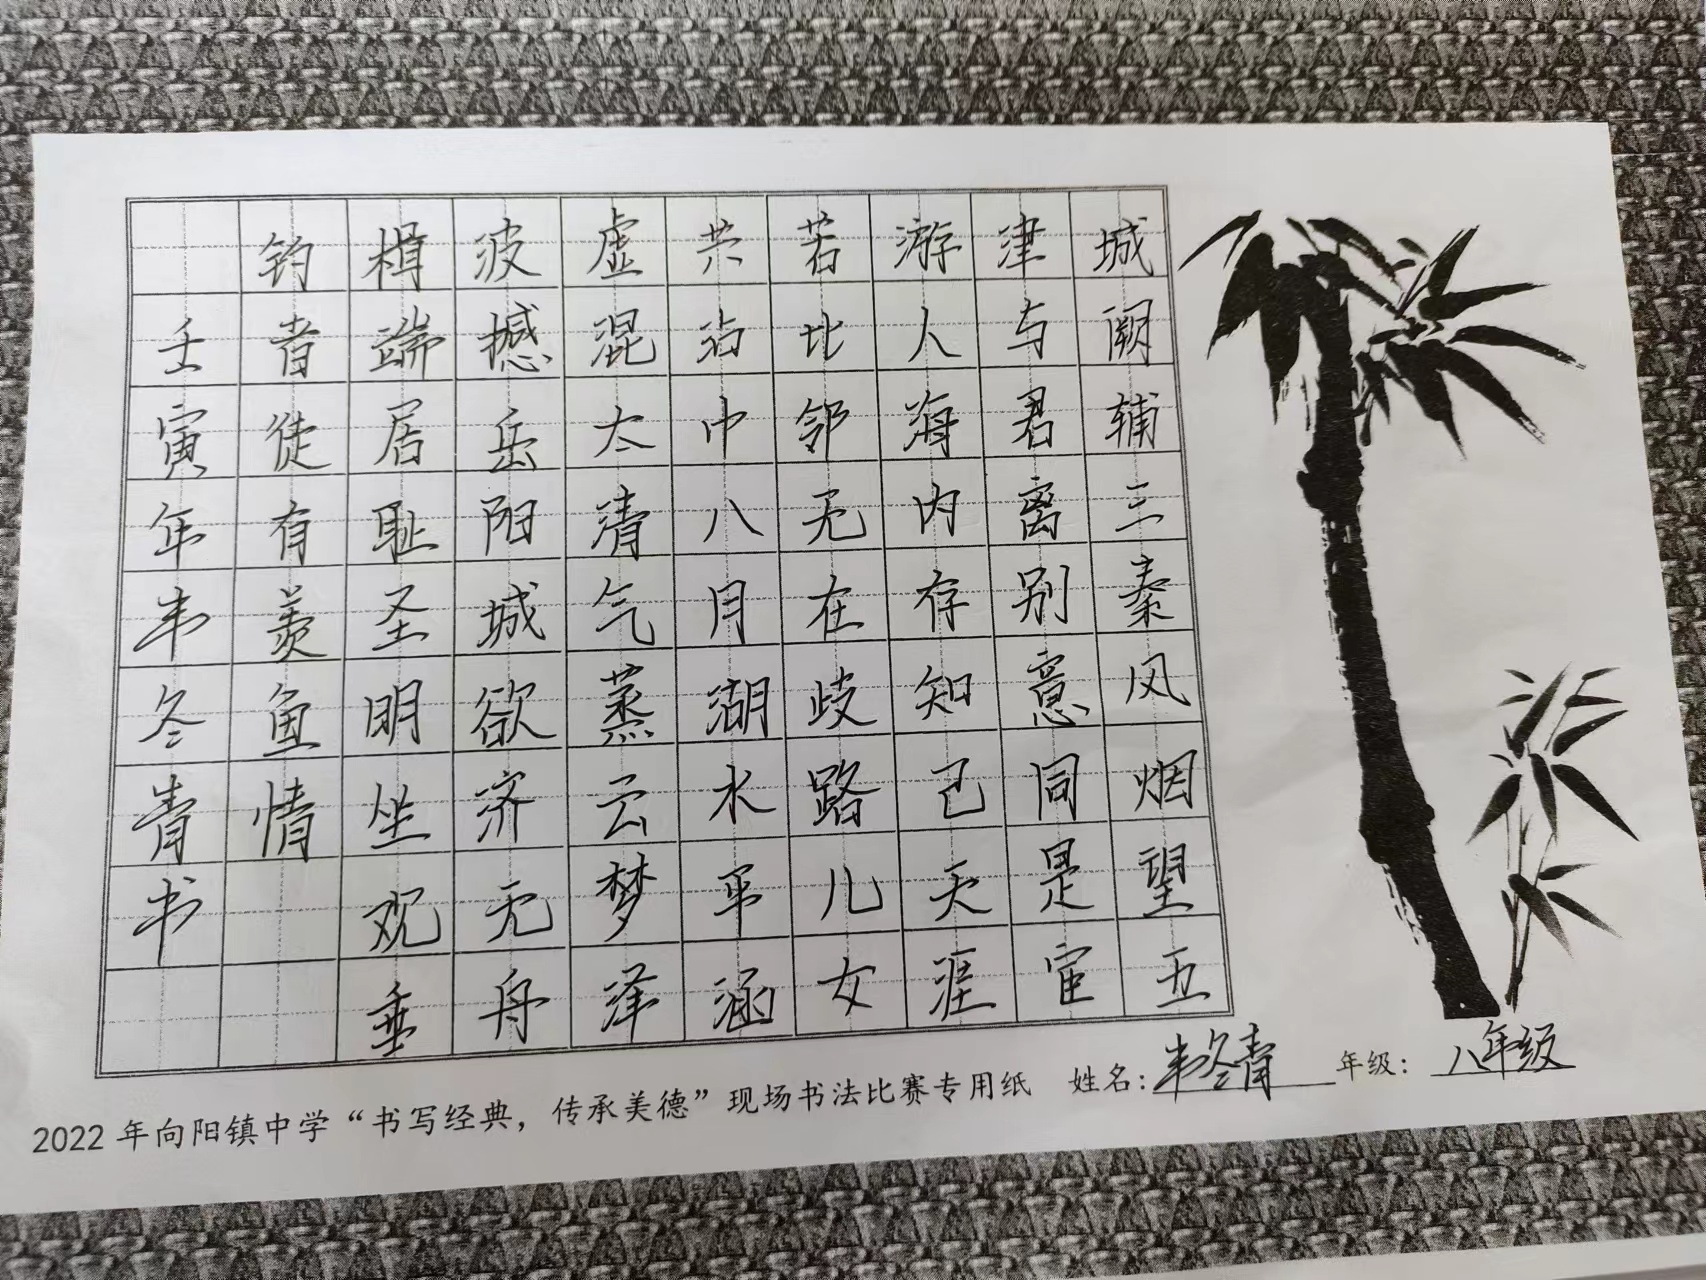 城阙辅三秦风烟望五
津与君离别意同是宦
游人海内存知己天涯
若比邻无在歧路儿女
共沾巾八月湖水平涵
虚混太清气蒸云梦泽
波撼岳阳城欲济无舟
楫端居耻圣明坐观垂
钓者徒有羡鱼情
壬寅年丰冬青书
2022年向阳镇中学“书写经典，传承美德”现场书法比赛专用纸 姓名：丰冬青 年级：八年级